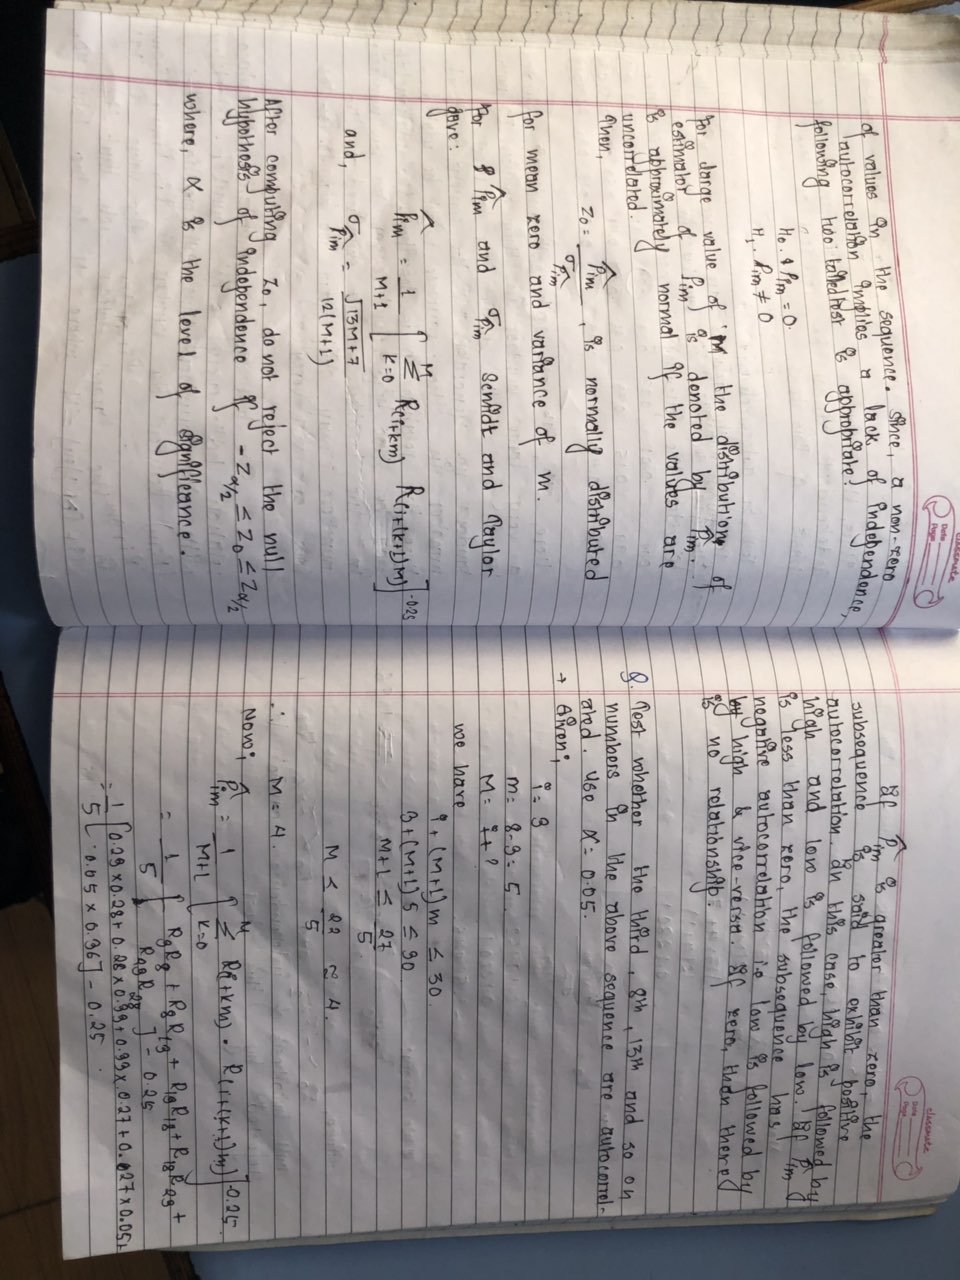 classmate
Date
Page
of values in the sequence. Since, a non-zero
autocorrelation implies a lack of independence,
following two tailed test is appropriate!
H₀: ρim = 0.
H₁: ρim ≠ 0
For large value of 'M' the distribution of
estimator of ρim is denoted by ρ̂im.
is approximately normal if the values are
uncorrelated.
Then,
Z₀ = ρ̂im / σρ̂im , is normally distributed
for mean zero and variance of m.
for ρ̂im and σρ̂im Schmidt and Taylor
gave:
ρ̂im = 1/(M+1) [ M Σ k=0 R(i+km) R(i+(k+1)m) ] - 0.25
and,
σρ̂im = √13M+7 / 12(M+1)
After computing Z₀, do not reject the null
hypothesis of independence if -Zα/2 ≤ Z₀ ≤ Zα/2
where, α is the level of significance.
classmate
Date
Page
If ρ̂im is greater than zero, the
subsequence is said to exhibit positive
autocorrelation. In this case, high is followed by
high and low is followed by low. If ρ̂im
is less than zero, the subsequence has
negative autocorrelation i.e low is followed by
high & vice-versa. If zero, than there
is no relationship.
Q. Test whether the third, 8th, 13th and so on
numbers in the above sequence are autocorrel-
ated. Use α = 0.05.
→ Given,
i = 3
m = 8-3 = 5
M = ?
we have
i + (M+1)m ≤ 30.
3 + (M+1)5 ≤ 30
M+1 ≤ 27/5
M ≤ 22/5 ≈ 4.
∴ M = 4.
Now,
ρ̂im = 1/(M+1) [ M Σ k=0 R(i+km) . R(i+(k+1)m) ] - 0.25.
= 1/5 [ R3R8 + R8R13 + R13R18 + R18R23 +
R23R28 ] - 0.25
= 1/5 [ 0.23 x 0.28 + 0.28 x 0.33 + 0.33 x 0.27 + 0.27 x 0.05 +
0.05 x 0.36 ] - 0.25